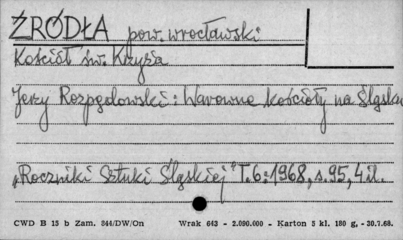 ŹRÓDŁA pow. wrocławski
Kościół św. Krzyża
Jerzy Rozpędowski: Warowne kościoły na Śląsku
„Roczniki Sztuki Śląskiej" T.6:1968, s.95, 4 il.
CWD B 15 b Zam. 844/DW/On Wrak 643 - 2.090.000 - Karton 5 kl. 180 g, -30.7.68.